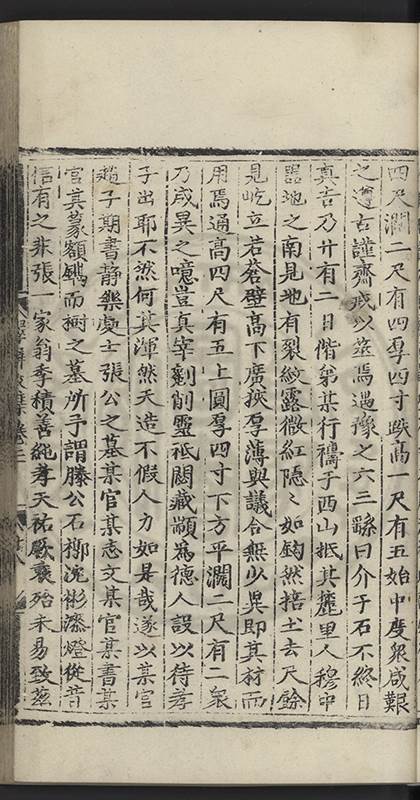 四尺濶二尺有四厚四寸趺高一尺有五始中度衆咸艱
之遵古謹齋戒以筮焉遇豫之六三繇曰介于石不終日
真吉乃廿有二日偕弟某行禱于西山抵其麓里人穆中
噐地之南見地有裂紋露微紅隠〻如鈎然掊土去尺餘
見屹立若蒼壁高下廣狹厚薄與議合無少異即其材而
用焉通高四尺有五上圓厚四寸下方平濶二尺有二衆
乃咸異之噫豈真宰劖削靈祇閟藏顓為德人設以待孝
子出耶不然何其渾然天造不假人力如是哉遂以某官
趙子期書静樂處士張公之墓某官某志文某官某書某
官其篆額鐫而樹之墓所予謂滕公石槨沈彬漆燈從昔
信有之非張一家翁季積善純孝天祐厥衷殆未易致葢